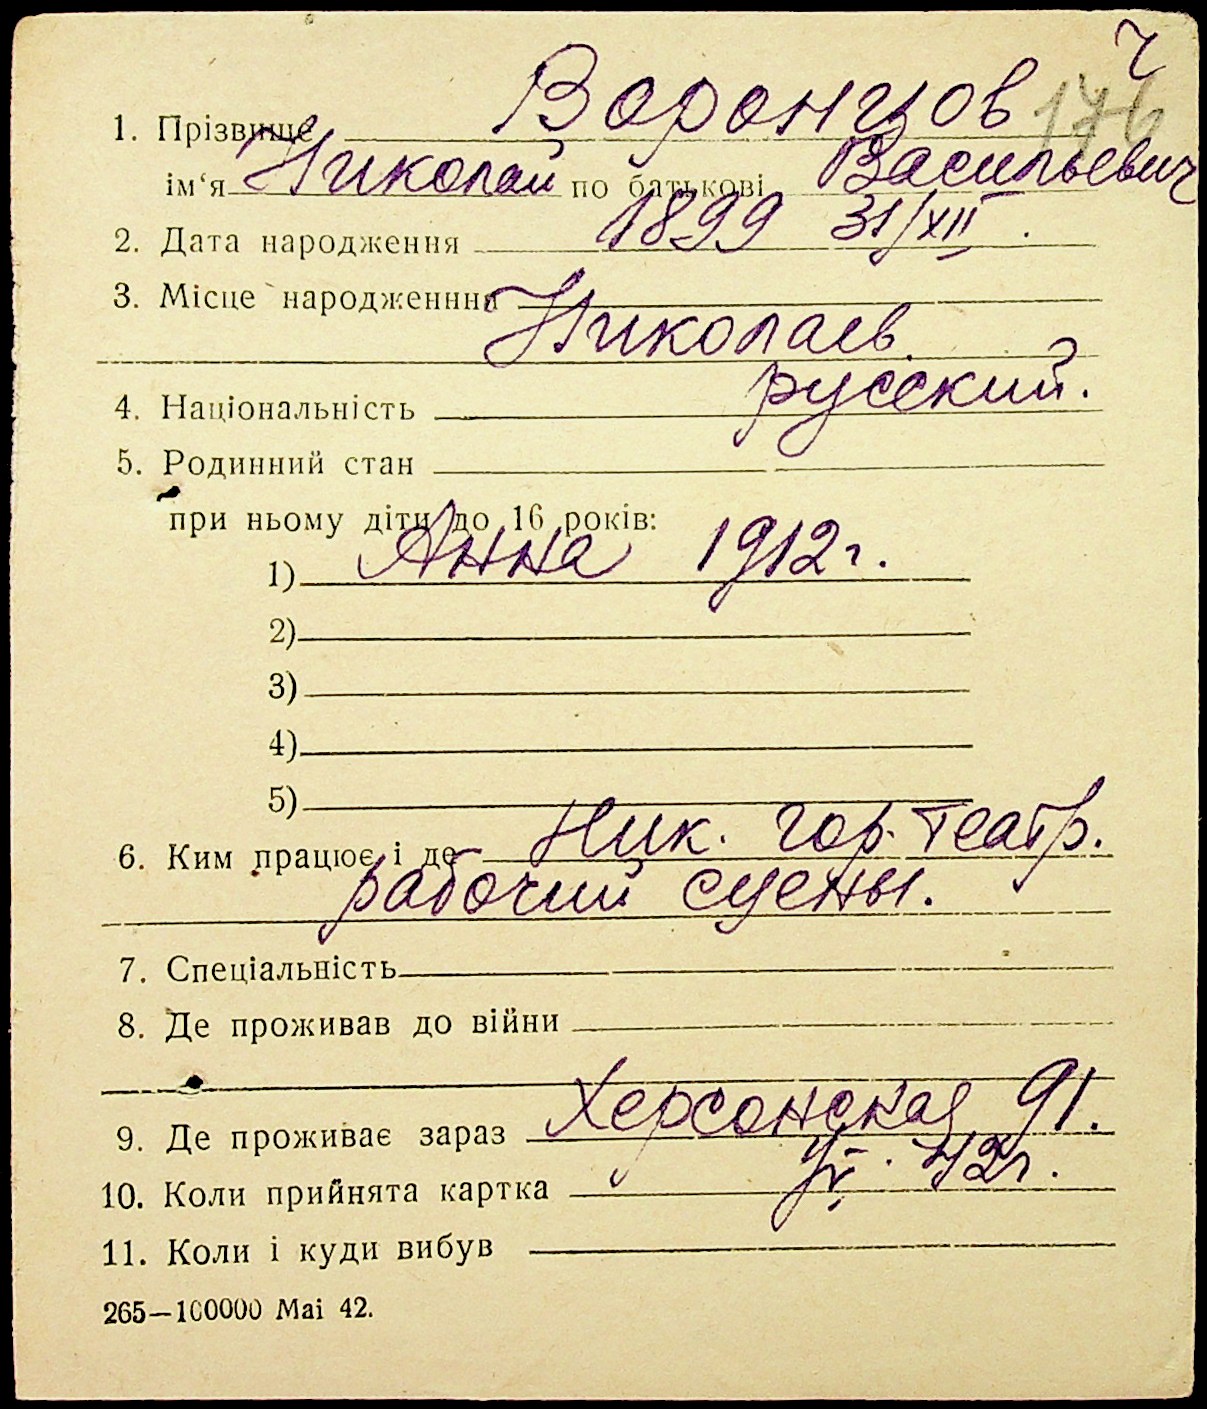 ч
1. Прізвище Воронцов 176
ім‘я Николай по батькові Васильевич
2. Дата народження 1899 31/XII.
3. Місце народженння
Николаев.
4. Національність русский.
5. Родинний стан
при ньому діти до 16 років:
1) Анна 1912 г.
2)
3)
4)
5)
6. Ким працює і де Ник. гор. театр.
рабочий сцены.
7. Спеціальність
8. Де проживав до війни
9. Де проживає зараз Херсонская 91.
10. Коли прийнята картка 42 г.
11. Коли і куди вибув
265—100000 Mai 42.